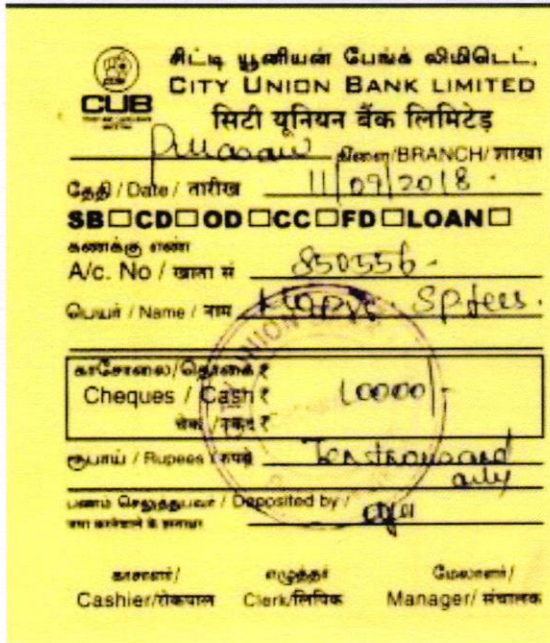 சிட்டி யூனியன் பேங்க் லிமிடெட்,
CITY UNION BANK LIMITED
CUB
सिटी यूनियन बैंक लिमिटेड
கிளை/BRANCH/ शाखा
தேதி / Date / तारीख 11/09/2018.
SB□CD□OD□CC□FD□LOAN□
கணக்கு எண்
A/c. No / खाता सं 850556-
பெயர் / Name / नाम
காசோலை/தொகை ₹
Cheques / Cash ₹ 10000/-
चेक / नकद ₹
ரூபாய் / Rupees / रुपये Ten thousand
only
பணம் செலுத்துபவர் / Deposited by /
காசாளர்/ எழுத்தர் மேலாளர்/
Cashier/रोकपाल Clerk/लिपिक Manager/ संचालक